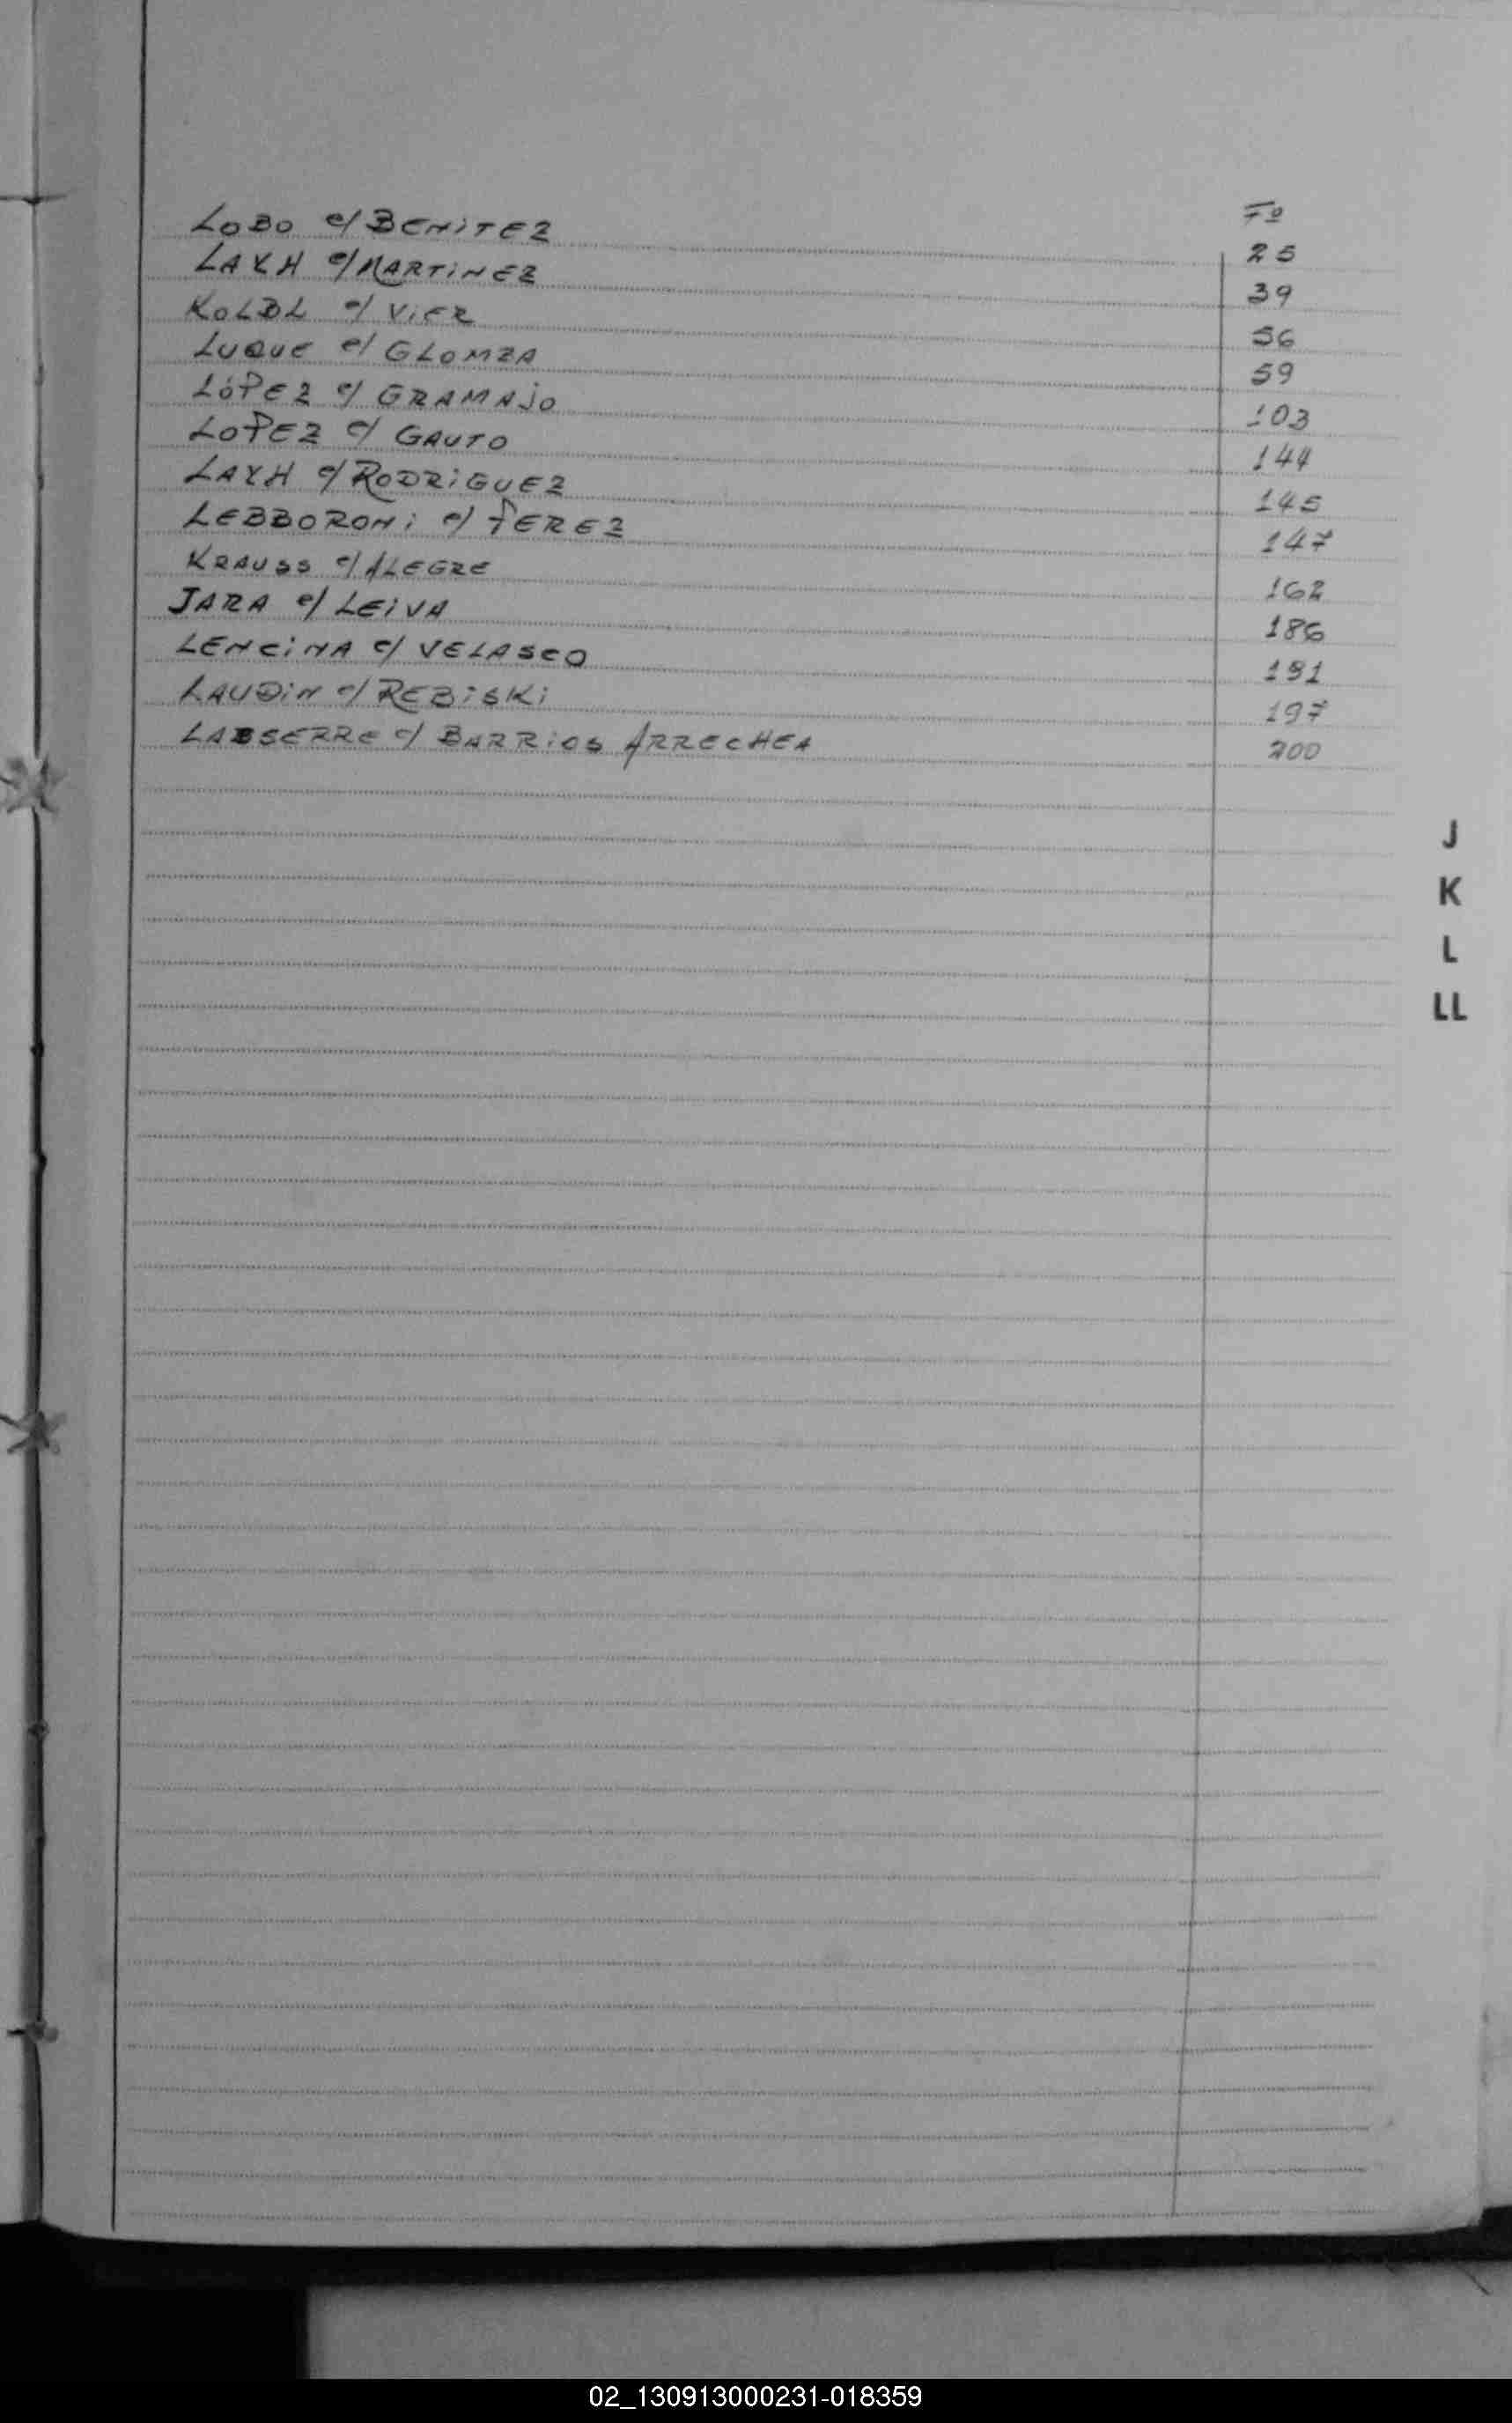 Fº
LOBO c/ BENITEZ 25
LAYH c/ MARTINEZ 39
KOLBL c/ VIER 56
LUQUE c/ GLOMBA 59
LÓPEZ c/ GRAMAJO 103
LOPEZ c/ GAUTO 144
LAYH c/ RODRIGUEZ 145
LEBBORONI c/ PEREZ 147
KRAUSS c/ ALEGRE 162
JARA c/ LEIVA 186
LENCINA c/ VELASCO 191
LAUDIN c/ REBISKI 197
LABSERRE c/ BARRIOS ARRECHEA 200
J
K
L
LL
02_130913000231-018359